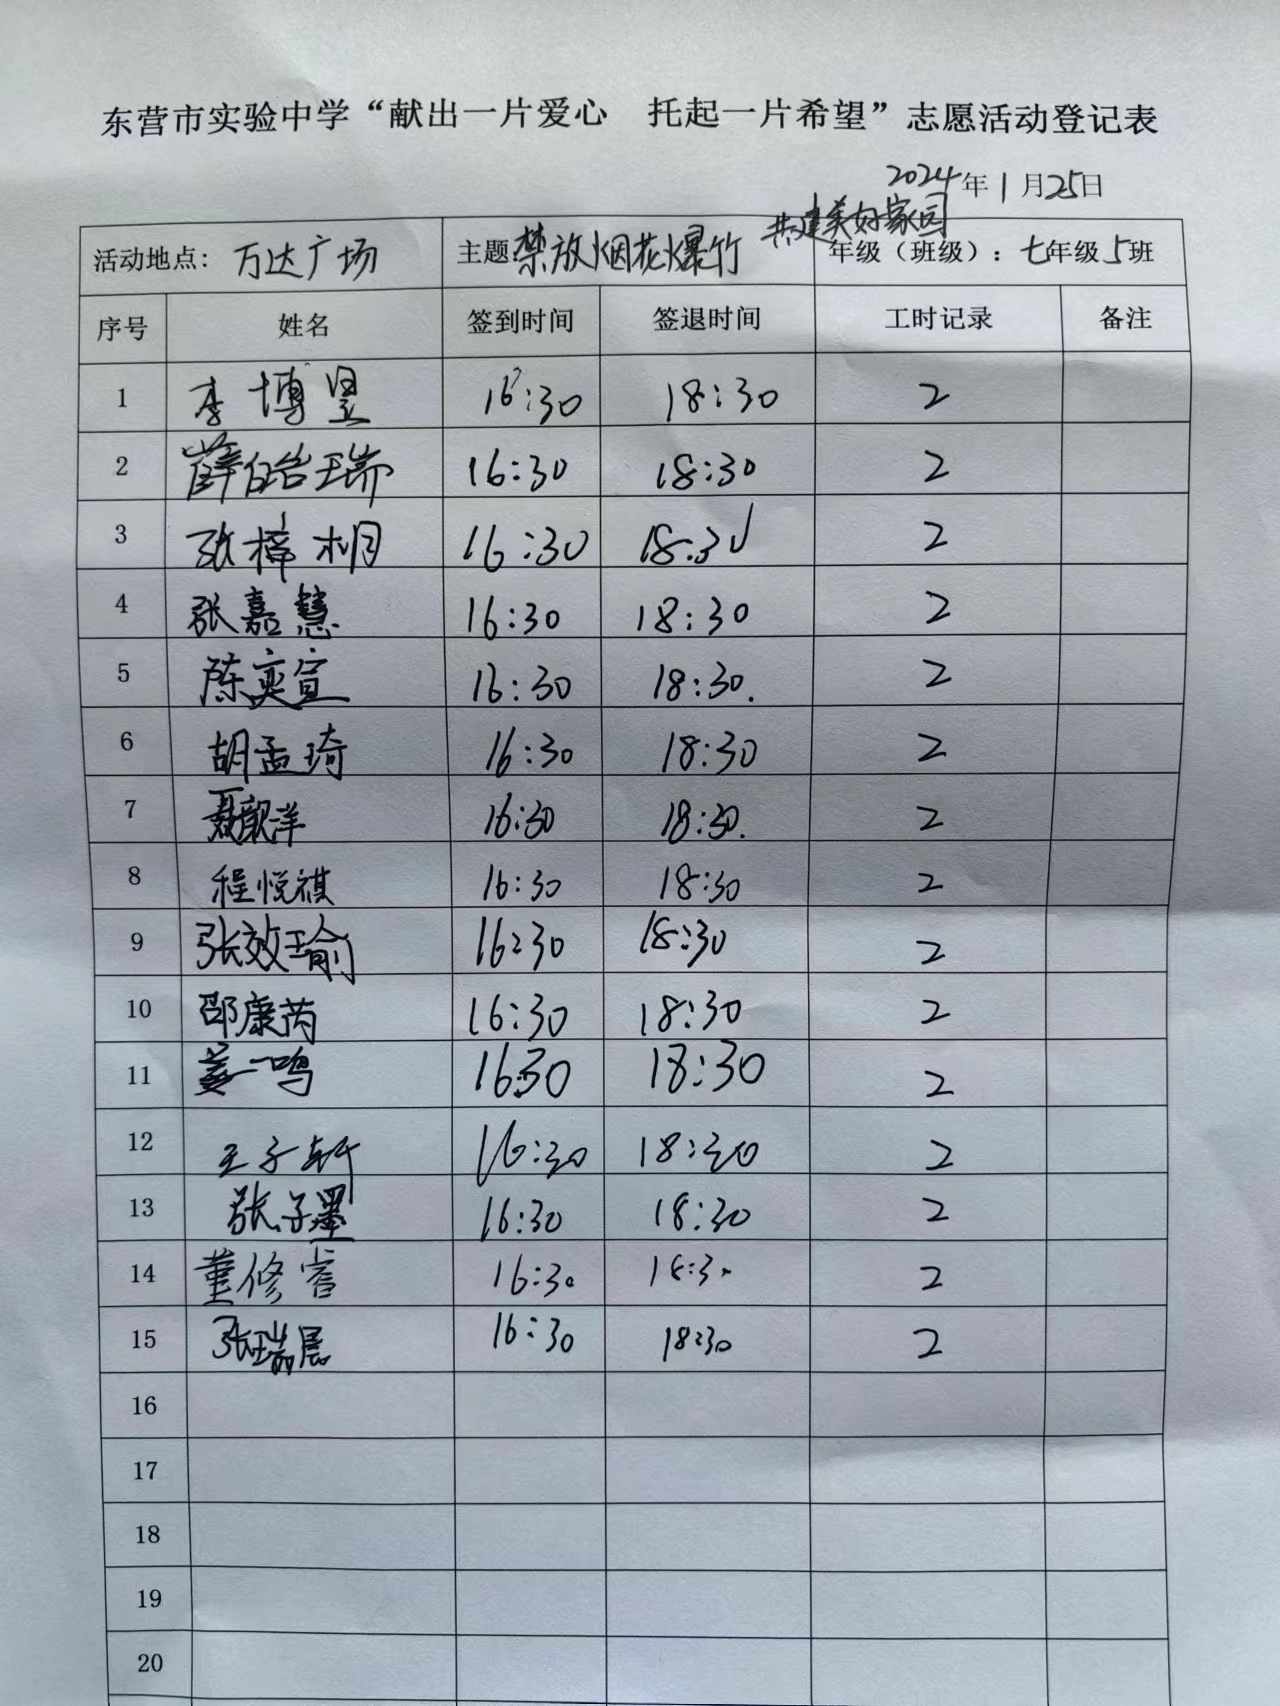 东营市实验中学“献出一片爱心 托起一片希望”志愿活动登记表
2024年1月25日
活动地点: 万达广场 主题 禁放烟花爆竹 共建美好家园 年级（班级）: 七年级5班
序号 姓名 签到时间 签退时间 工时记录 备注
1 李博昱 16:30 18:30 2
2 薛皓瑞 16:30 18:30 2
3 张梓桐 16:30 18:30 2
4 张嘉慧 16:30 18:30 2
5 陈奕宣 16:30 18:30. 2
6 胡孟琦 16:30 18:30 2
7 聂歆洋 16:30 18:30. 2
8 程悦祺 16:30 18:30 2
9 张效瑜 16:30 18:30 2
10 邵康芮 16:30 18:30 2
11 姜一鸣 16:30 18:30 2
12 王子轩 16:30 18:30 2
13 张子墨 16:30 18:30 2
14 董修睿 16:30 18:30 2
15 张瑞晨 16:30 18:30 2
16
17
18
19
20